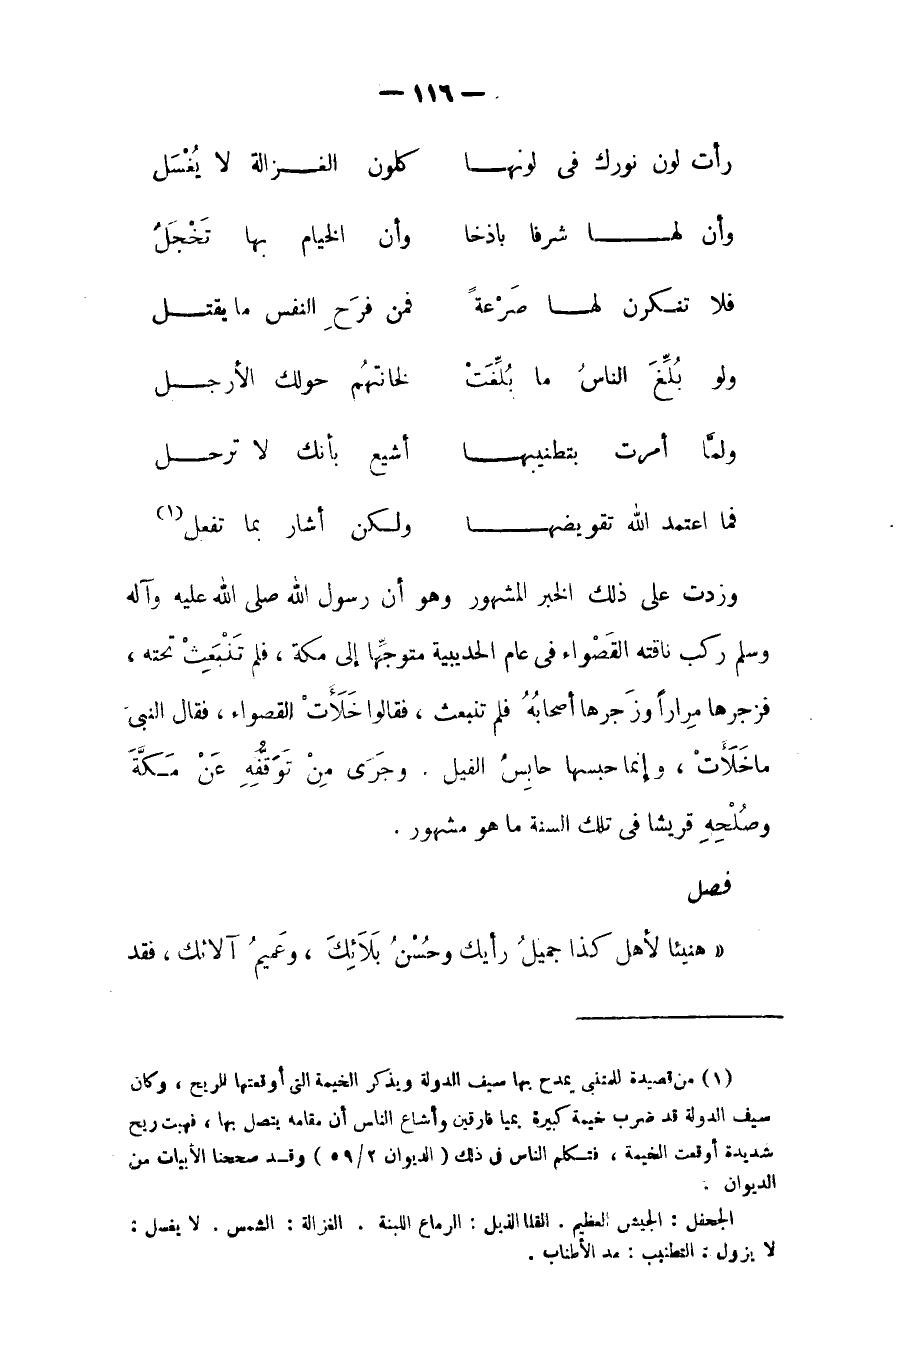 — ١١٦ —
رأت لون نورك فى لونهـــا كلون الغـــزالة لا يُغْسَل
وأن لهـــا شرفا باذخا وأن الخيام بها تَخْجَلُ
فلا تنـكرن لهـــا صَرْعةً فمن فرَح النفس ما يقتـــل
ولو بُلِّغَ الناسُ ما بُلِّغَتْ لخانتهُم حولك الأرجـــل
ولمَّا أمرت بتطنيبهـــا أشيع بأنك لا ترحـــل
فما اعتمد الله تقويضهـــا ولـكن أشار بما تفعل(١)
وزدت على ذلك الخبر المشهور وهو أن رسول الله صلى الله عليه وآله
وسلم ركب ناقته القَصْواء فى عام الحديبية متوجِّها إلى مكة ، فلم تَنْبَعِثْ تحته ،
فزجرها مِراراً وزَجرها أصحابُهُ فلم تنبعث ، فقالوا خَلَأَتْ القصواء ، فقال النبى
ما خَلَأَتْ ، وإنما حبسها حابِسُ الفيل . وجَرَى مِنْ تَوَقُّفِهِ عَنْ مَـكَّةَ
وصُلْحِهِ قريشا فى تلك السنة ما هو مشهور .
فصل
« هنيئا لأهل كذا جميلُ رأيك وحُسْنُ بَلَائِكَ ، وعَميمُ آلائك ، فقد
(١) من قصيدة للمتنبى يمدح بها سيف الدولة ويذكر الخيمة التى أوقعتها الريح ، وكان
سيف الدولة قد ضرب خيمة كبيرة بميا فارقين وأشاع الناس أن مقامه يتصل بها ، فهبت ريح
شديدة أوقعت الخيمة ، فتـكلم الناس فى ذلك ( الديوان ٥٩/٢ ) وقـد صححنا الأبيات من
الديوان .
الجحفل : الجيش العظيم . القنا الذبل : الرماح اللينة . الغزالة : الشمس . لا يغسل :
لا يزول : التطنيب : مد الأطناب .